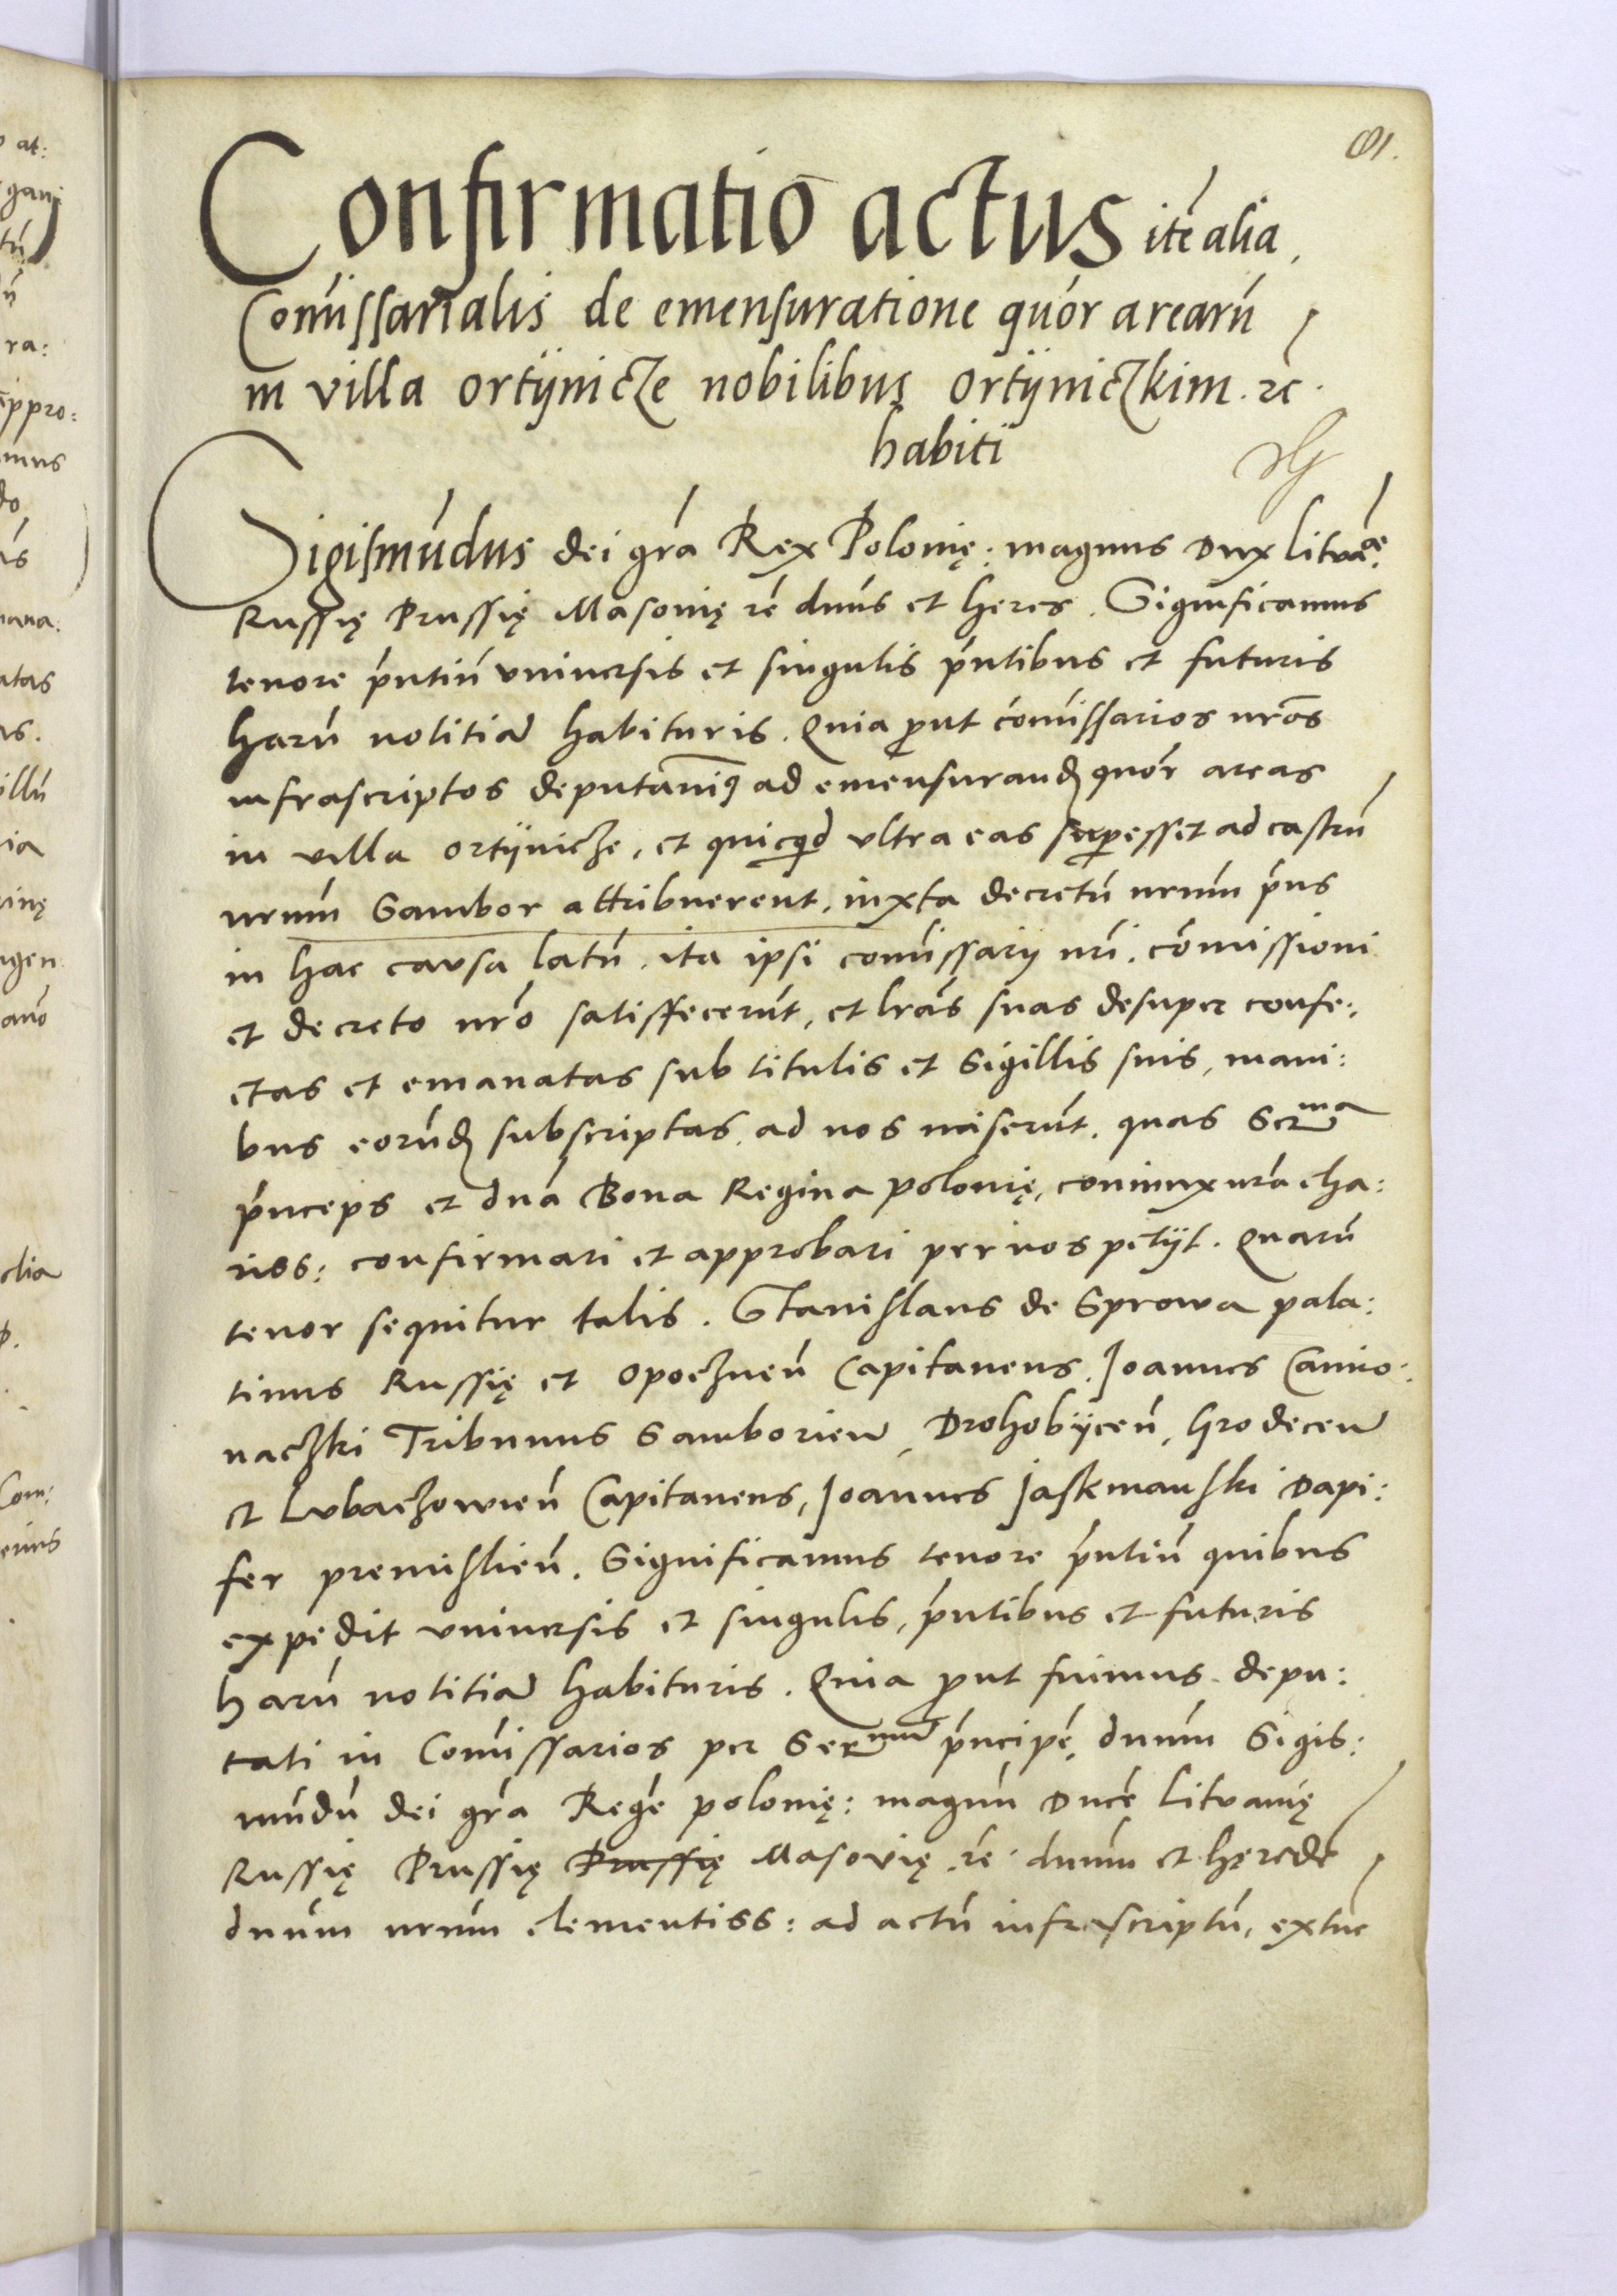 Confirmatio actus ite͂ alia
Com̃issarialis de emensuratione quor arearu͂
in villa ortÿnicze nobilibus ortÿniczkim. rc̃.
habiti
Sigismu͂dus dei gr͂a Rex Polonię: magnus Dux Litvae.
Russię Prussię Masovię rc̃ dn͂us et heres. Significamus
tenore p͂ntiu͂ vniuersis et singulis p͂ntibus et futuris
haru͂ notitia͂ habituris. Quia prout com̃issarios nr͂os
infrascriptos deputauim9 ad emensurand quor areas
in villa ortÿnicze, et quicq͂d vltra eas superesset ad castru͂
nrum͂ Sambor attribuerent, iuxta decretu͂ nrum͂ pr͂us
in hac causa latu͂. ita ipsi com̃issarij nr͂i. com̃issioni
et decreto nr͂o satisfecerun͂t, et lr͂as suas desuper confe:
ctas et emanatas sub titulis et sigillis suis, mani:
bus eorund subscriptas, ad nos miserun͂t. quas Serma
p͂nceps et dn͂a Bona Regina polonię, coniunx nr͂a cha:
riss: confirmari et approbari per nos petÿt. Quaru͂
tenor sequitur talis. Stanislaus de Sprowa pala:
tinus Russię et opocznen͂ Capitaneus. Joannes Camio:
naczki Tribunus Samborien͂, Drohobÿcen͂, Grodecen͂
et Lubaczowien͂ Capitaneus, Joannes Jaskmanski Dapi:
fer premislien͂. Significamus tenore p͂ntiu͂ quibus
expedit vniuersis et singulis, p͂ntibus et futuris
haru͂ notitia͂ habituris. Quia prout fuimus depu:
tati in Com̃issarios per Sermu͂ p͂ncipe͂, dnum͂ Sigis:
mundu͂ dei gr͂a Rege͂ polonię: magnu͂ Duce͂ Litvanię
Russię Prussię Prussię Masovię. rc̃ dnum͂ et heręde͂
dnum͂ nrum͂ clementiss: ad actu͂ infrascriptu͂, extu͂c